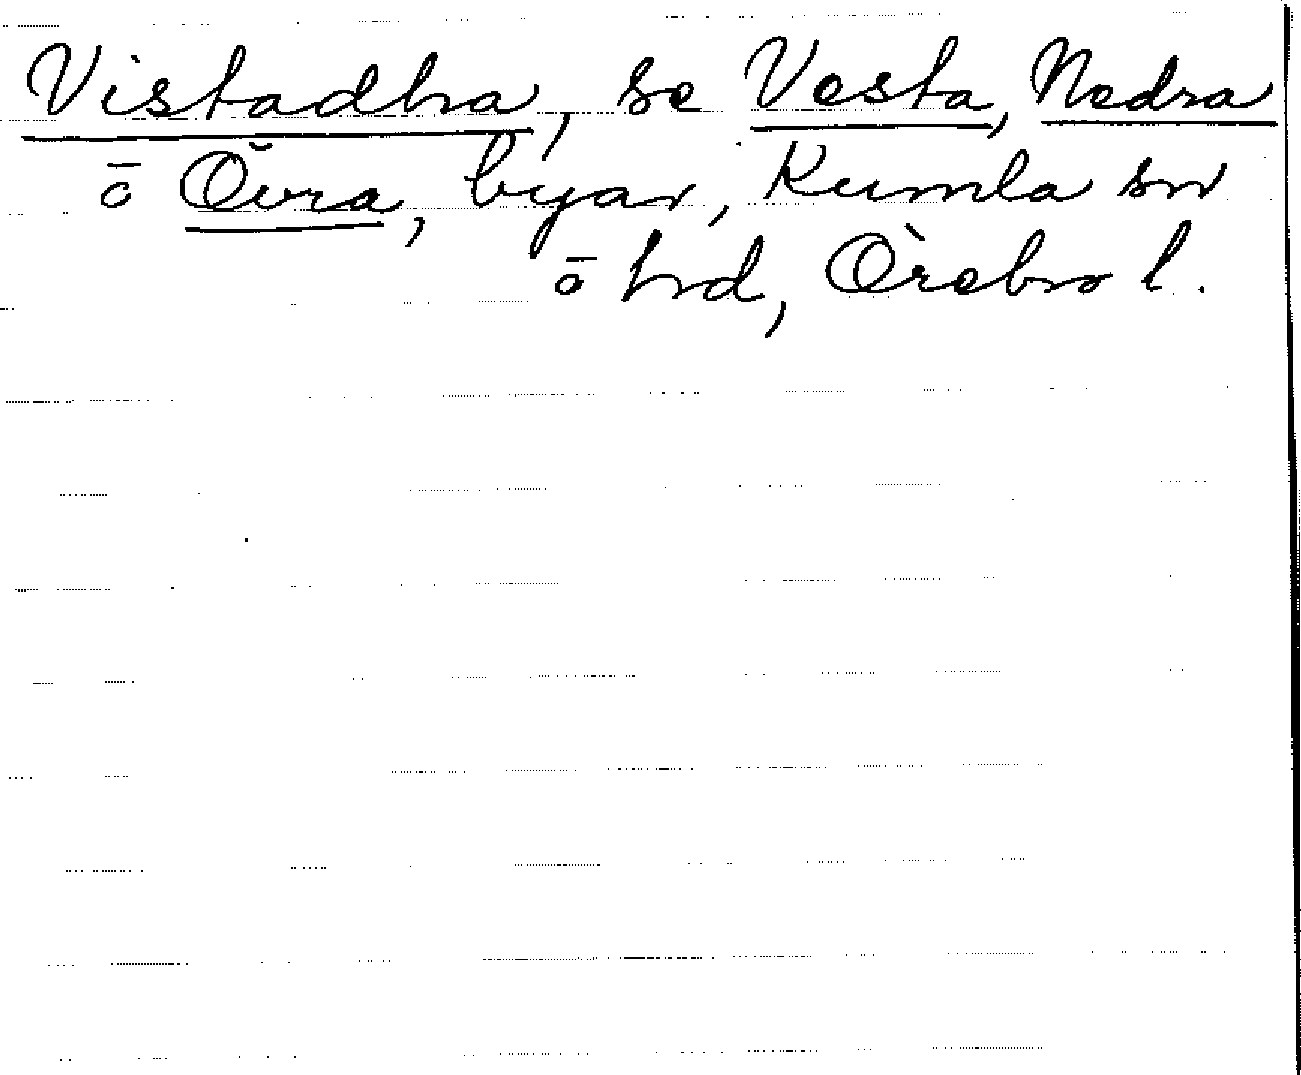 Vistadhra, se Vesta, Nedra
ō Övra, byar, Kumla sn
ō hrd, Örebro l.